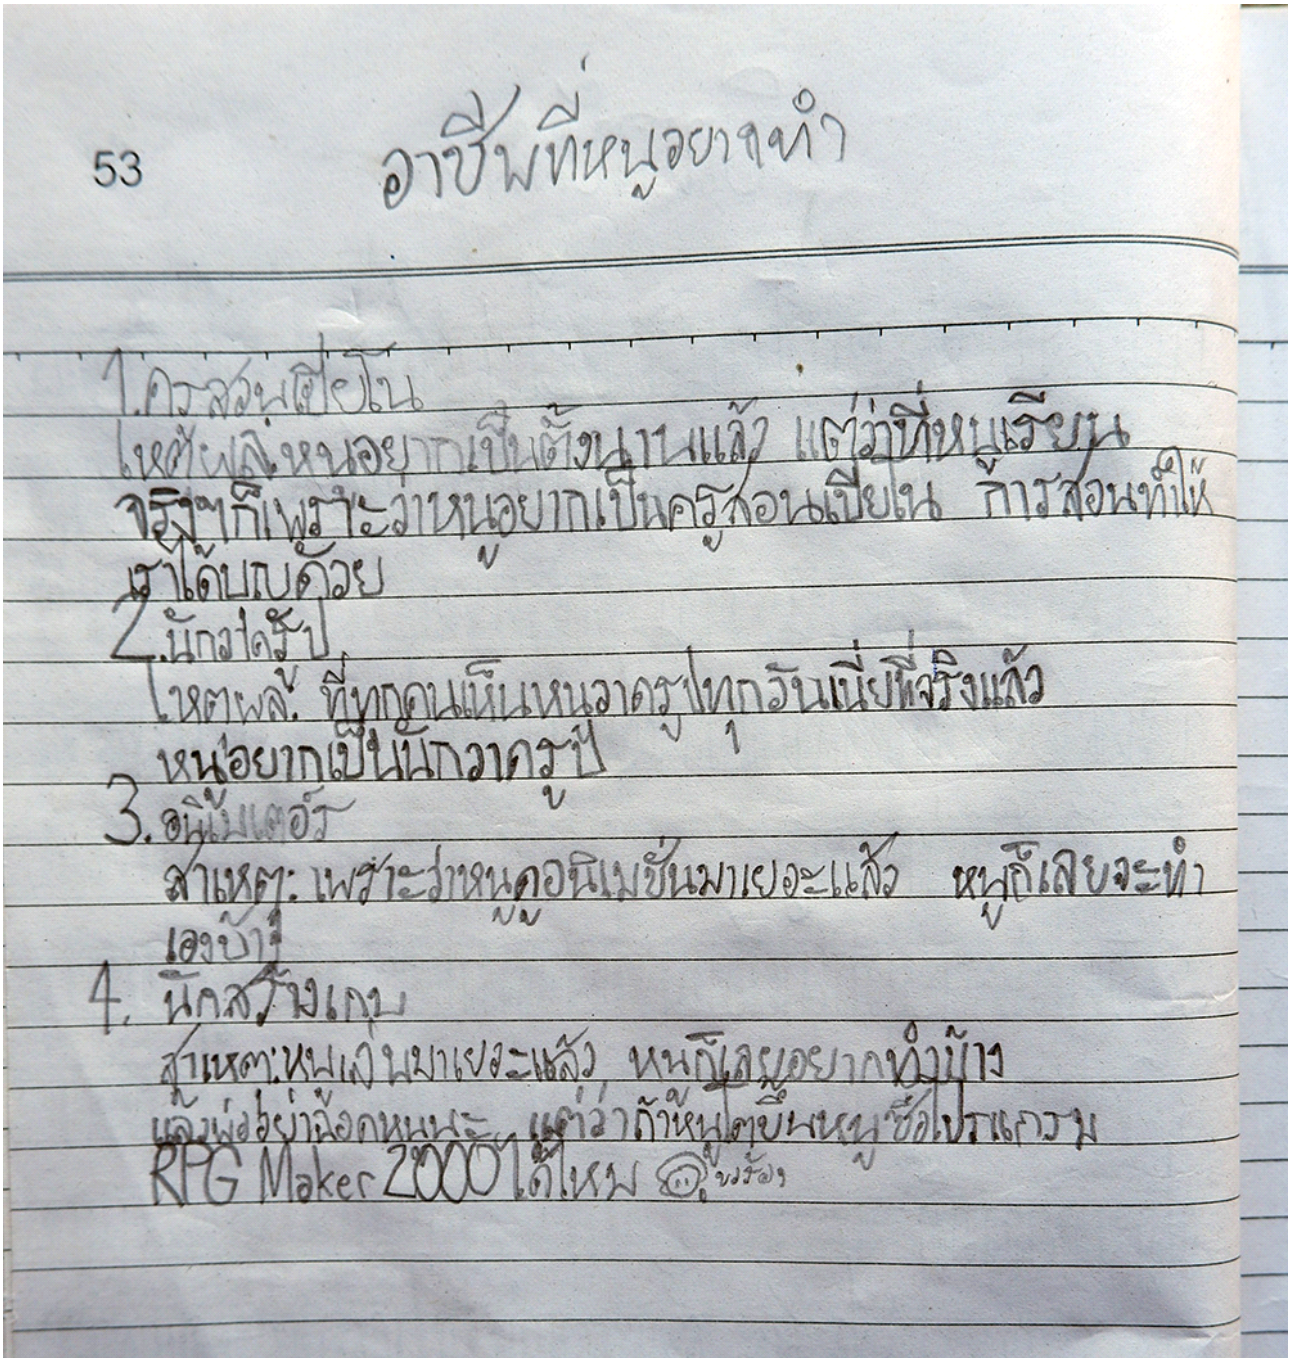 53
อาชีพที่หนูอยากทำ
1.ครูสอนเปียโน
เหตุผล:หนูอยากเป็นตั้งนานแล้ว แต่ว่าที่หนูเรียน
จริงๆก็เพราะว่าหนูอยากเป็นครูสอนเปียโน การสอนทำให้
เราได้บุญด้วย
2.นักวาดรูป
เหตุผล: ที่ทุกคนเห็นหนูวาดรูปทุกวันเนี่ยที่จริงแล้ว
หนูอยากเป็นนักวาดรูป
3. อนิเมเตอร์
สาเหตุ: เพราะว่าหนูดูอนิเมชั่นมาเยอะแล้ว หนูก็เลยจะทำ
เองบ้าง
4. นักสร้างเกม
สาเหตุ:หนูเล่นมาเยอะแล้ว หนูก็เลยอยากทำบ้าง
แล้วพ่ออย่าช็อคหนูนะ แต่ว่าถ้าหนูโตขึ้นหนูซื้อโปรแกรม
RPG Maker 2000 ได้ไหม